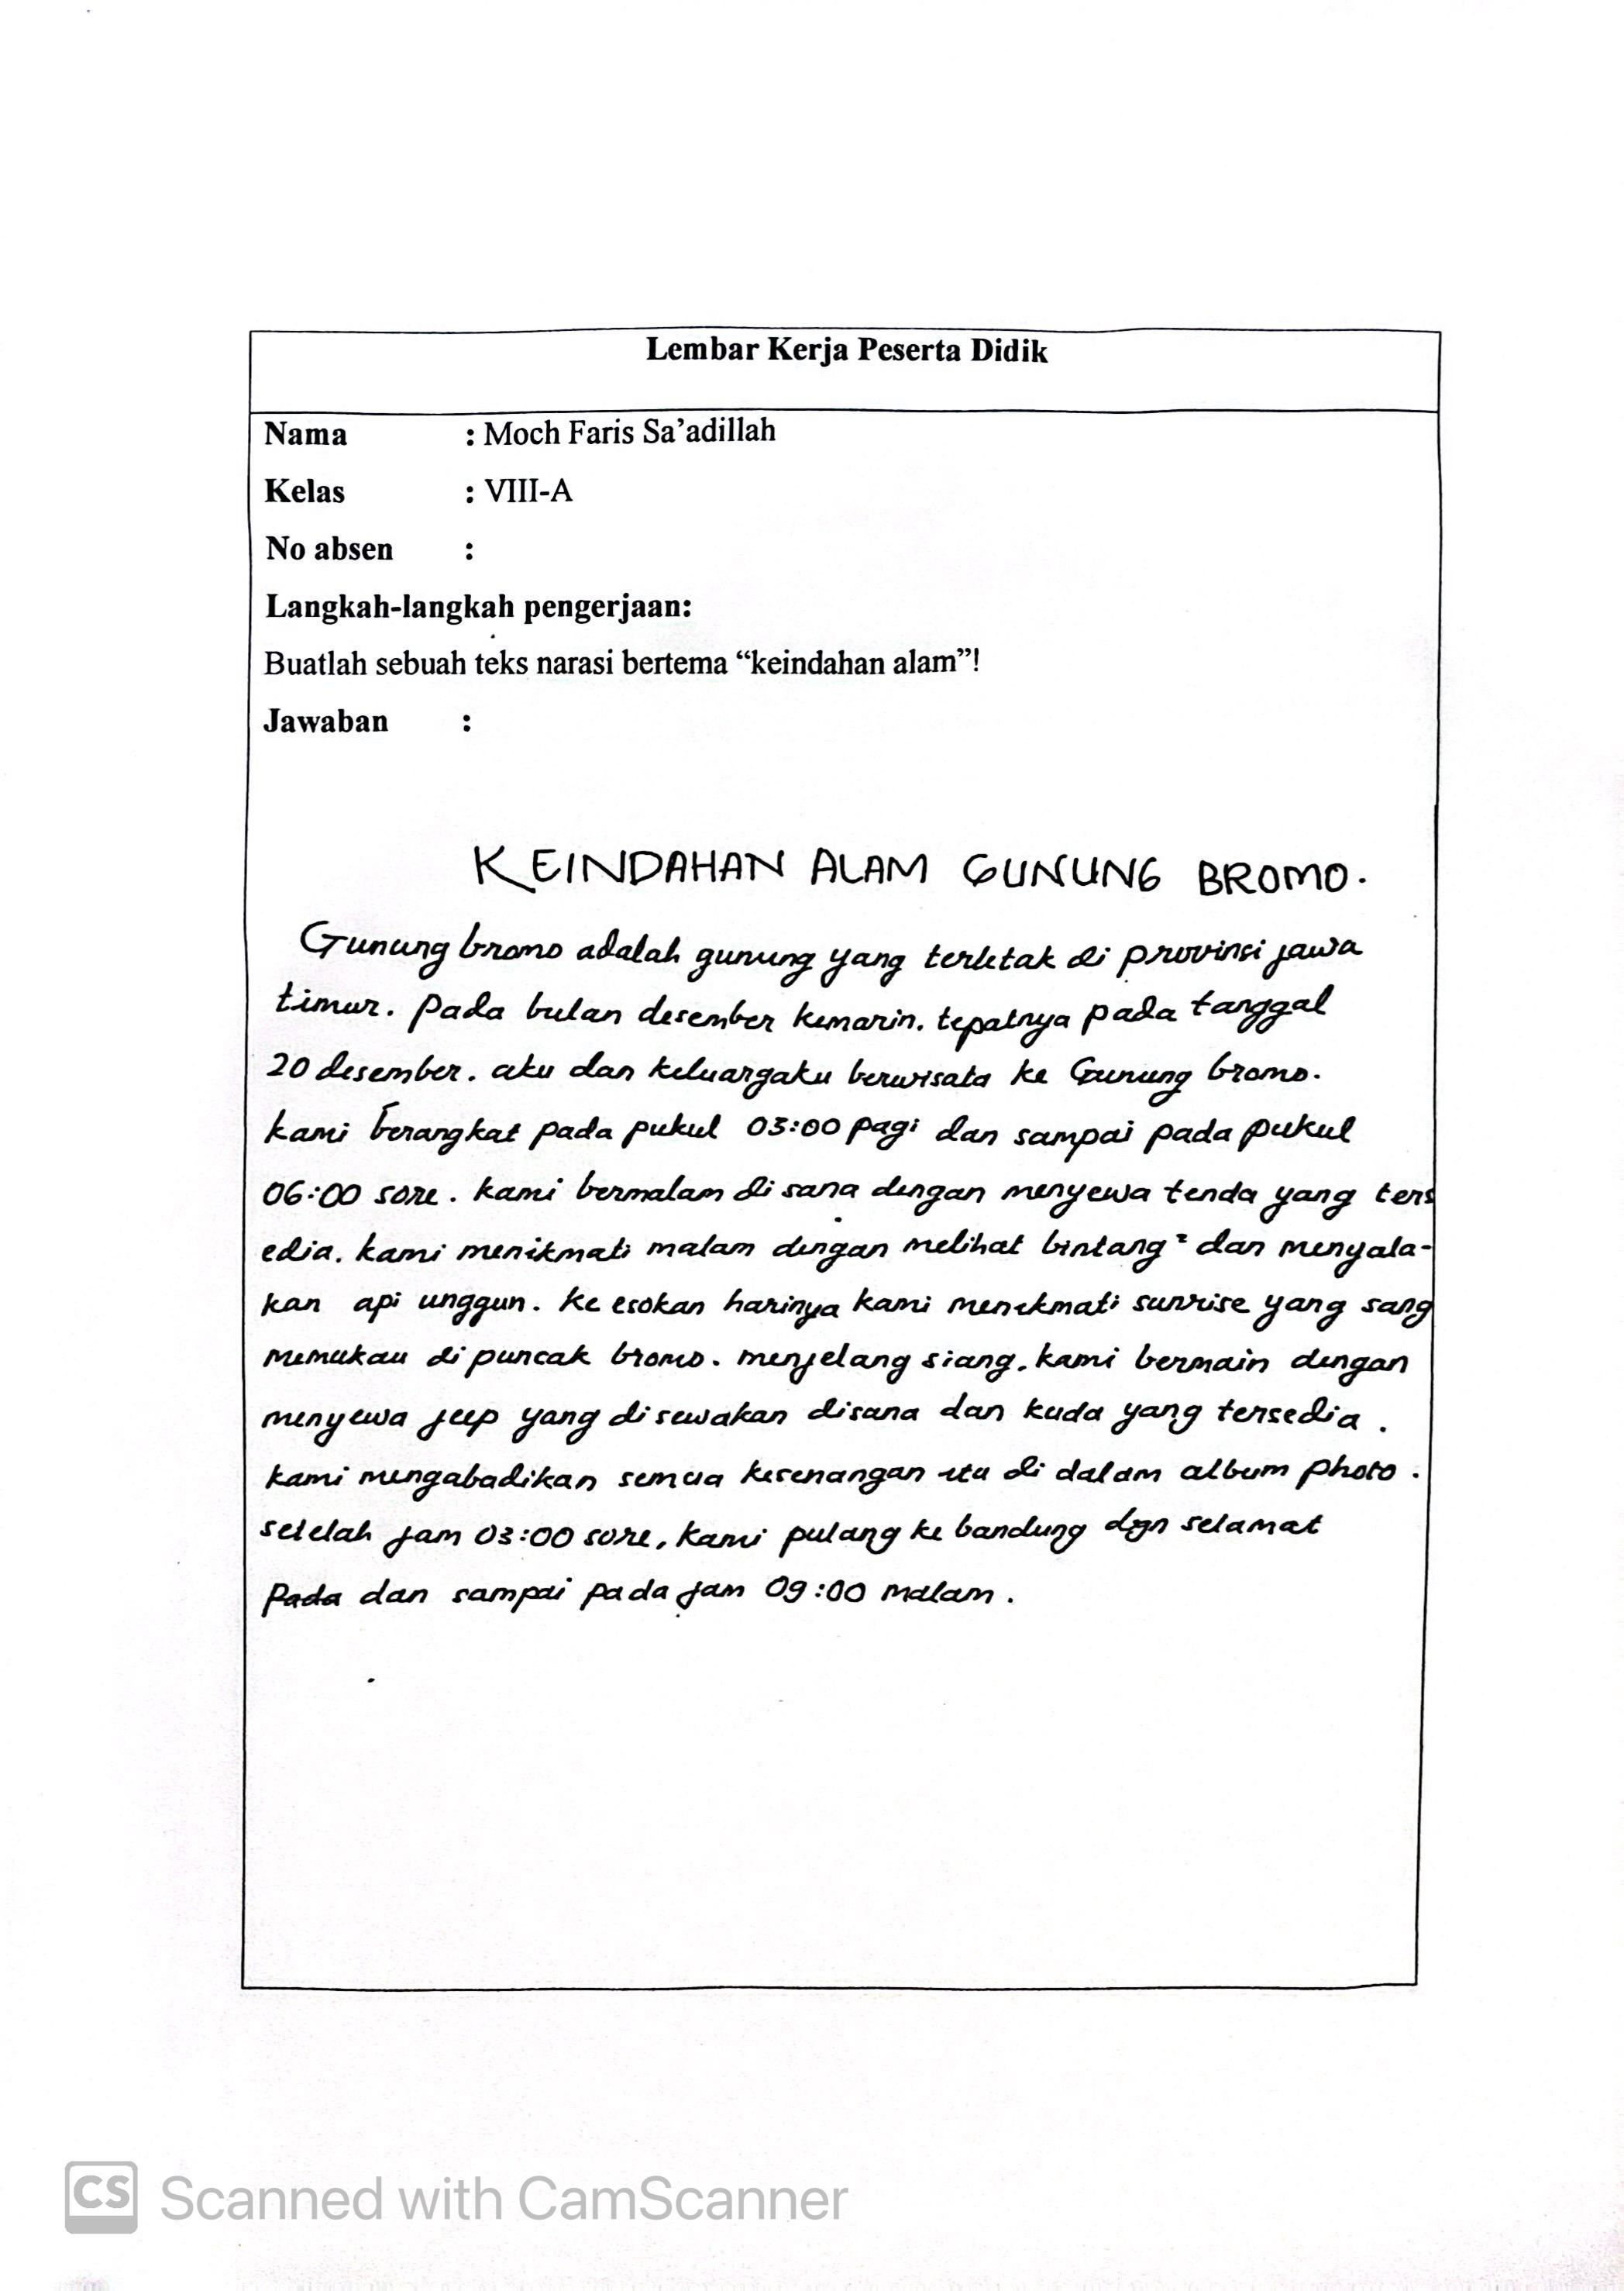 Lembar Kerja Peserta Didik
Nama : Moch Faris Sa’adillah
Kelas : VIII-A
No absen :
Langkah-langkah pengerjaan:
Buatlah sebuah teks narasi bertema “keindahan alam”!
Jawaban :
KEINDAHAN ALAM GUNUNG BROMO.
Gunung bromo adalah gunung yang terletak di provinsi jawa
timur. pada bulan desember kemarin. tepatnya pada tanggal
20 desember. aku dan keluargaku berwisata ke Gunung bromo.
kami berangkat pada pukul 03:00 pagi dan sampai pada pukul
06:00 sore. kami bermalam di sana dengan menyewa tenda yang ters
edia. kami menikmati malam dengan melihat bintang² dan menyala-
kan api unggun. ke esokan harinya kami menikmati sunrise yang sang
memukau di puncak bromo. menjelang siang, kami bermain dengan
menyewa jeep yang di sewakan disana dan kuda yang tersedia.
kami mengabadikan semua kesenangan itu di dalam album photo.
setelah jam 03:00 sore, kami pulang ke bandung dgn selamat
Pada dan sampai pada jam 09:00 malam.
CS Scanned with CamScanner